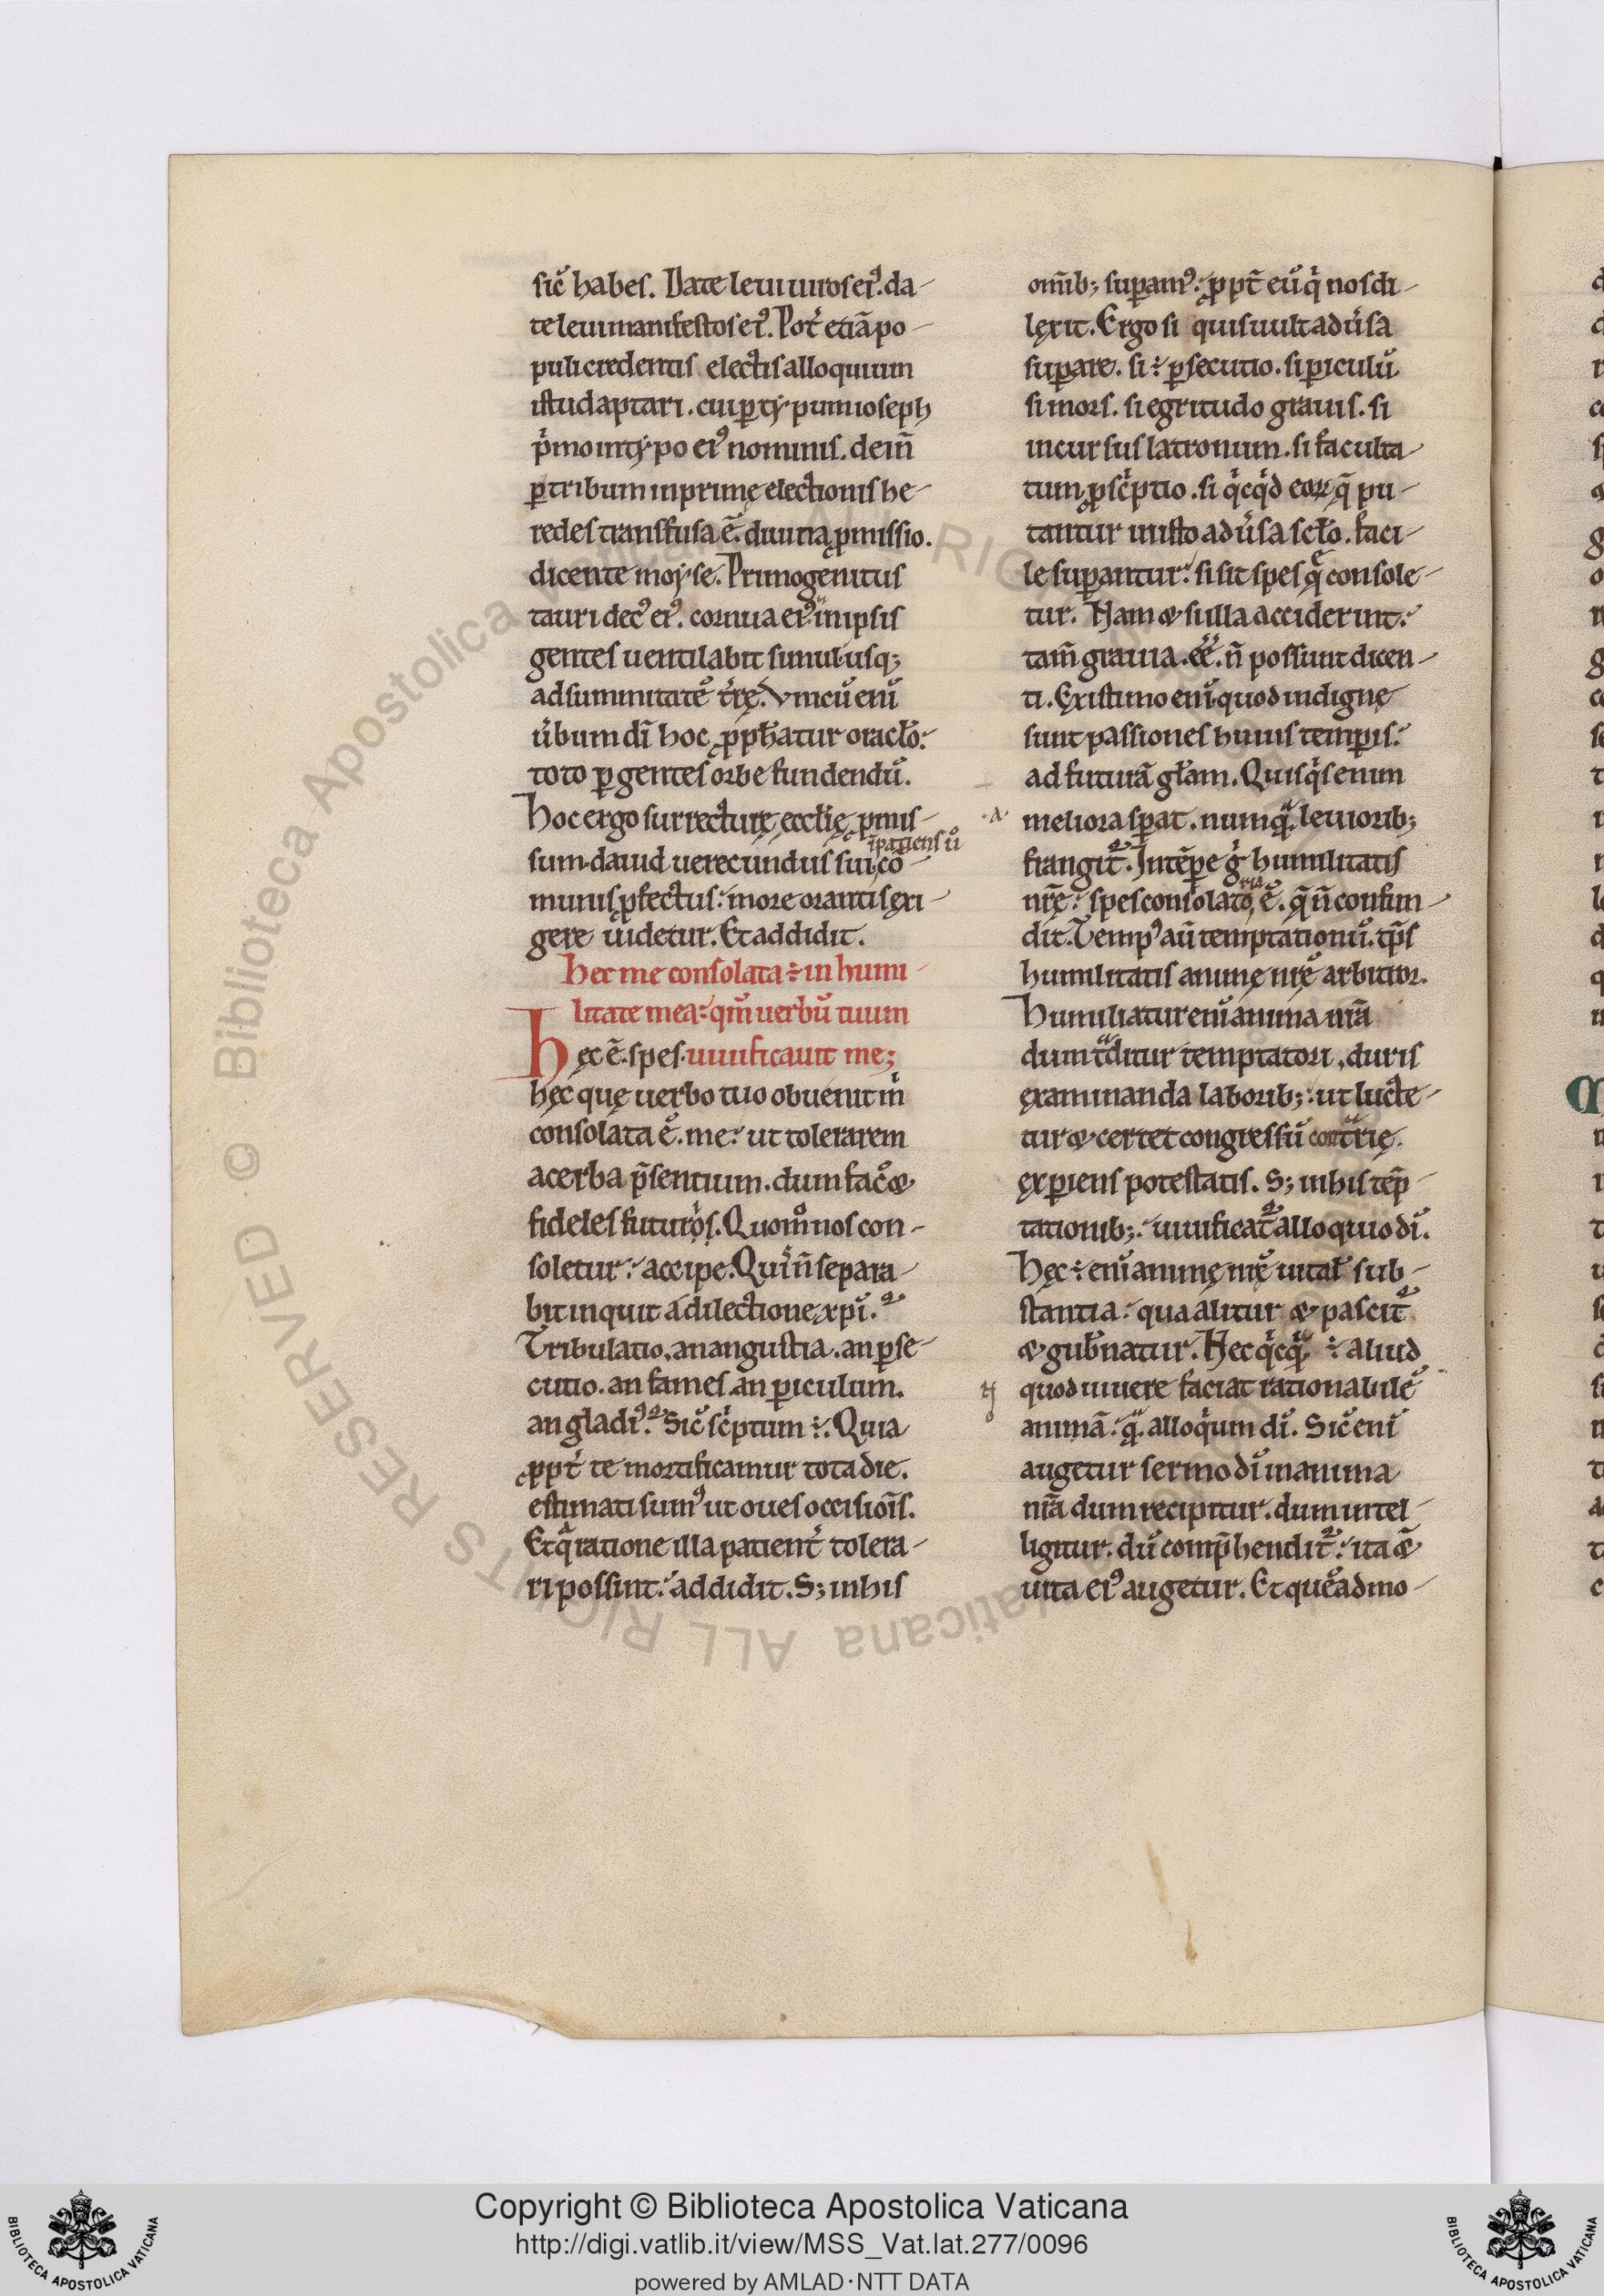 sic̄ habes. Date leui uiros ei⁹. da-
te leui manifestos ei⁹. Pot̄ etiā po-
puli credentis electis alloquium
istud aptari. cui p̱ tẏpum ioseph
p̍mo in tẏpo ei⁹ nominis. dein̄
p̱ tribum in primę electionis he-
redes transfusa ē. diuina ꝓmissio.
dicente moẏse. Primogenitus
tauri dec⁹ ei⁹. cornua ei⁹ in ipsis
gentes uentilabit simul usq;
ad summitatē t̄rę. Vnicū eni
u̍bum dī hoc ꝓph̄atur oracl̄o:
toto p̱ gentes orbe fundendū.
Hoc ergo surrecturę eccl̄ię ꝓmis-
īpatiens ū
sum. dauid uerecundus sui, cō-
munis ꝓfectus: more orantis exi-
gere uidetur. Et addidit.
Hec me consolata ÷ in humi-
litate mea: qm̄ uerbū tuum
Hęc ē. spes. uiuificauit me;
hęc quę uerbo tuo obuenit m̍
consolata ē. me: ut tolerarem
acerba p̄sentium. dum fac̄ &
fideles futuros. Quom̊ nos con-
soletur: accipe. Qui n̄ separa-
bit inquit a dilectione xp̄i.
Tribulatio. an angustia. an p̱se-
cutio. an fames. an p̱iculum.
an gladi⁹. Sic̄ sc̍ptum ÷. Quia
ꝓpt̍ te mortificamur tota die.
estimati sum⁹ ut oues occisiōis.
Et q̄ ratione illa patient̍ tolera-
ri possint: addidit. S; in his
om̄ib; sup̱am⁹: ꝓpt̄ eū q̍ nos di-
lexit. Ergo si quis uult adu̍sa
sup̱are. si ÷ p̱secutio. si p̱iculū
si mors. si egritudo grauis. si
incursus latronum. si faculta-
tum ꝓsc̍ptio. si q̍cq̍d eoꝝ q̄ pu-
tantur in isto adu̍sa scl̄o. faci-
le sup̱antur: si sit spes q̄ console-
tur. Nam & si illa acciderint:
tam̄ grauia. ēē. n̄ possunt dicen-
ti. Existimo enī quod indignę
sunt passiones huius temp̱is:
ad futurā gl̄am. Quisq̍s enim
meliora sp̱at. numq̄ leuiorib;
frangit̄. Intēp̱e g̍ humilitatis
nr̄ę: spes consolatoria ē. q̄ n̄ confun-
dit. Temp⁹ aū temptationū. tp̄s
humilitatis animę nr̄ę arbitror.
Humiliatur enī anima nr̄a
dum t̄ditur temptatori. duris
examinanda laborib;: ut lucte-
tur & certet congressū cont̄rię
exp̱iens potestatis. S; in his tēp-
tationib;: uiuificat̄ alloquio dī.
Hęc ÷ enī animę nr̄ę uital̄ sub-
stantia: qua alitur & pascit̄
& gub̄natur. Nec q̍cq̄ ÷ aliud
quod uiuere faciat rationabilē
animā: q̄. alloq̍um dī. Sic̄ enī
augetur sermo dī in anima
nr̄a dum recipitur. dum intel-
ligitur. dū comp̄hendit̄: ita &
uita ei⁹ augetur. Et quēadmo-
Copyright © Biblioteca Apostolica Vaticana
http://digi.vatlib.it/view/MSS_Vat.lat.277/0096
powered by AMLAD·NTT DATA